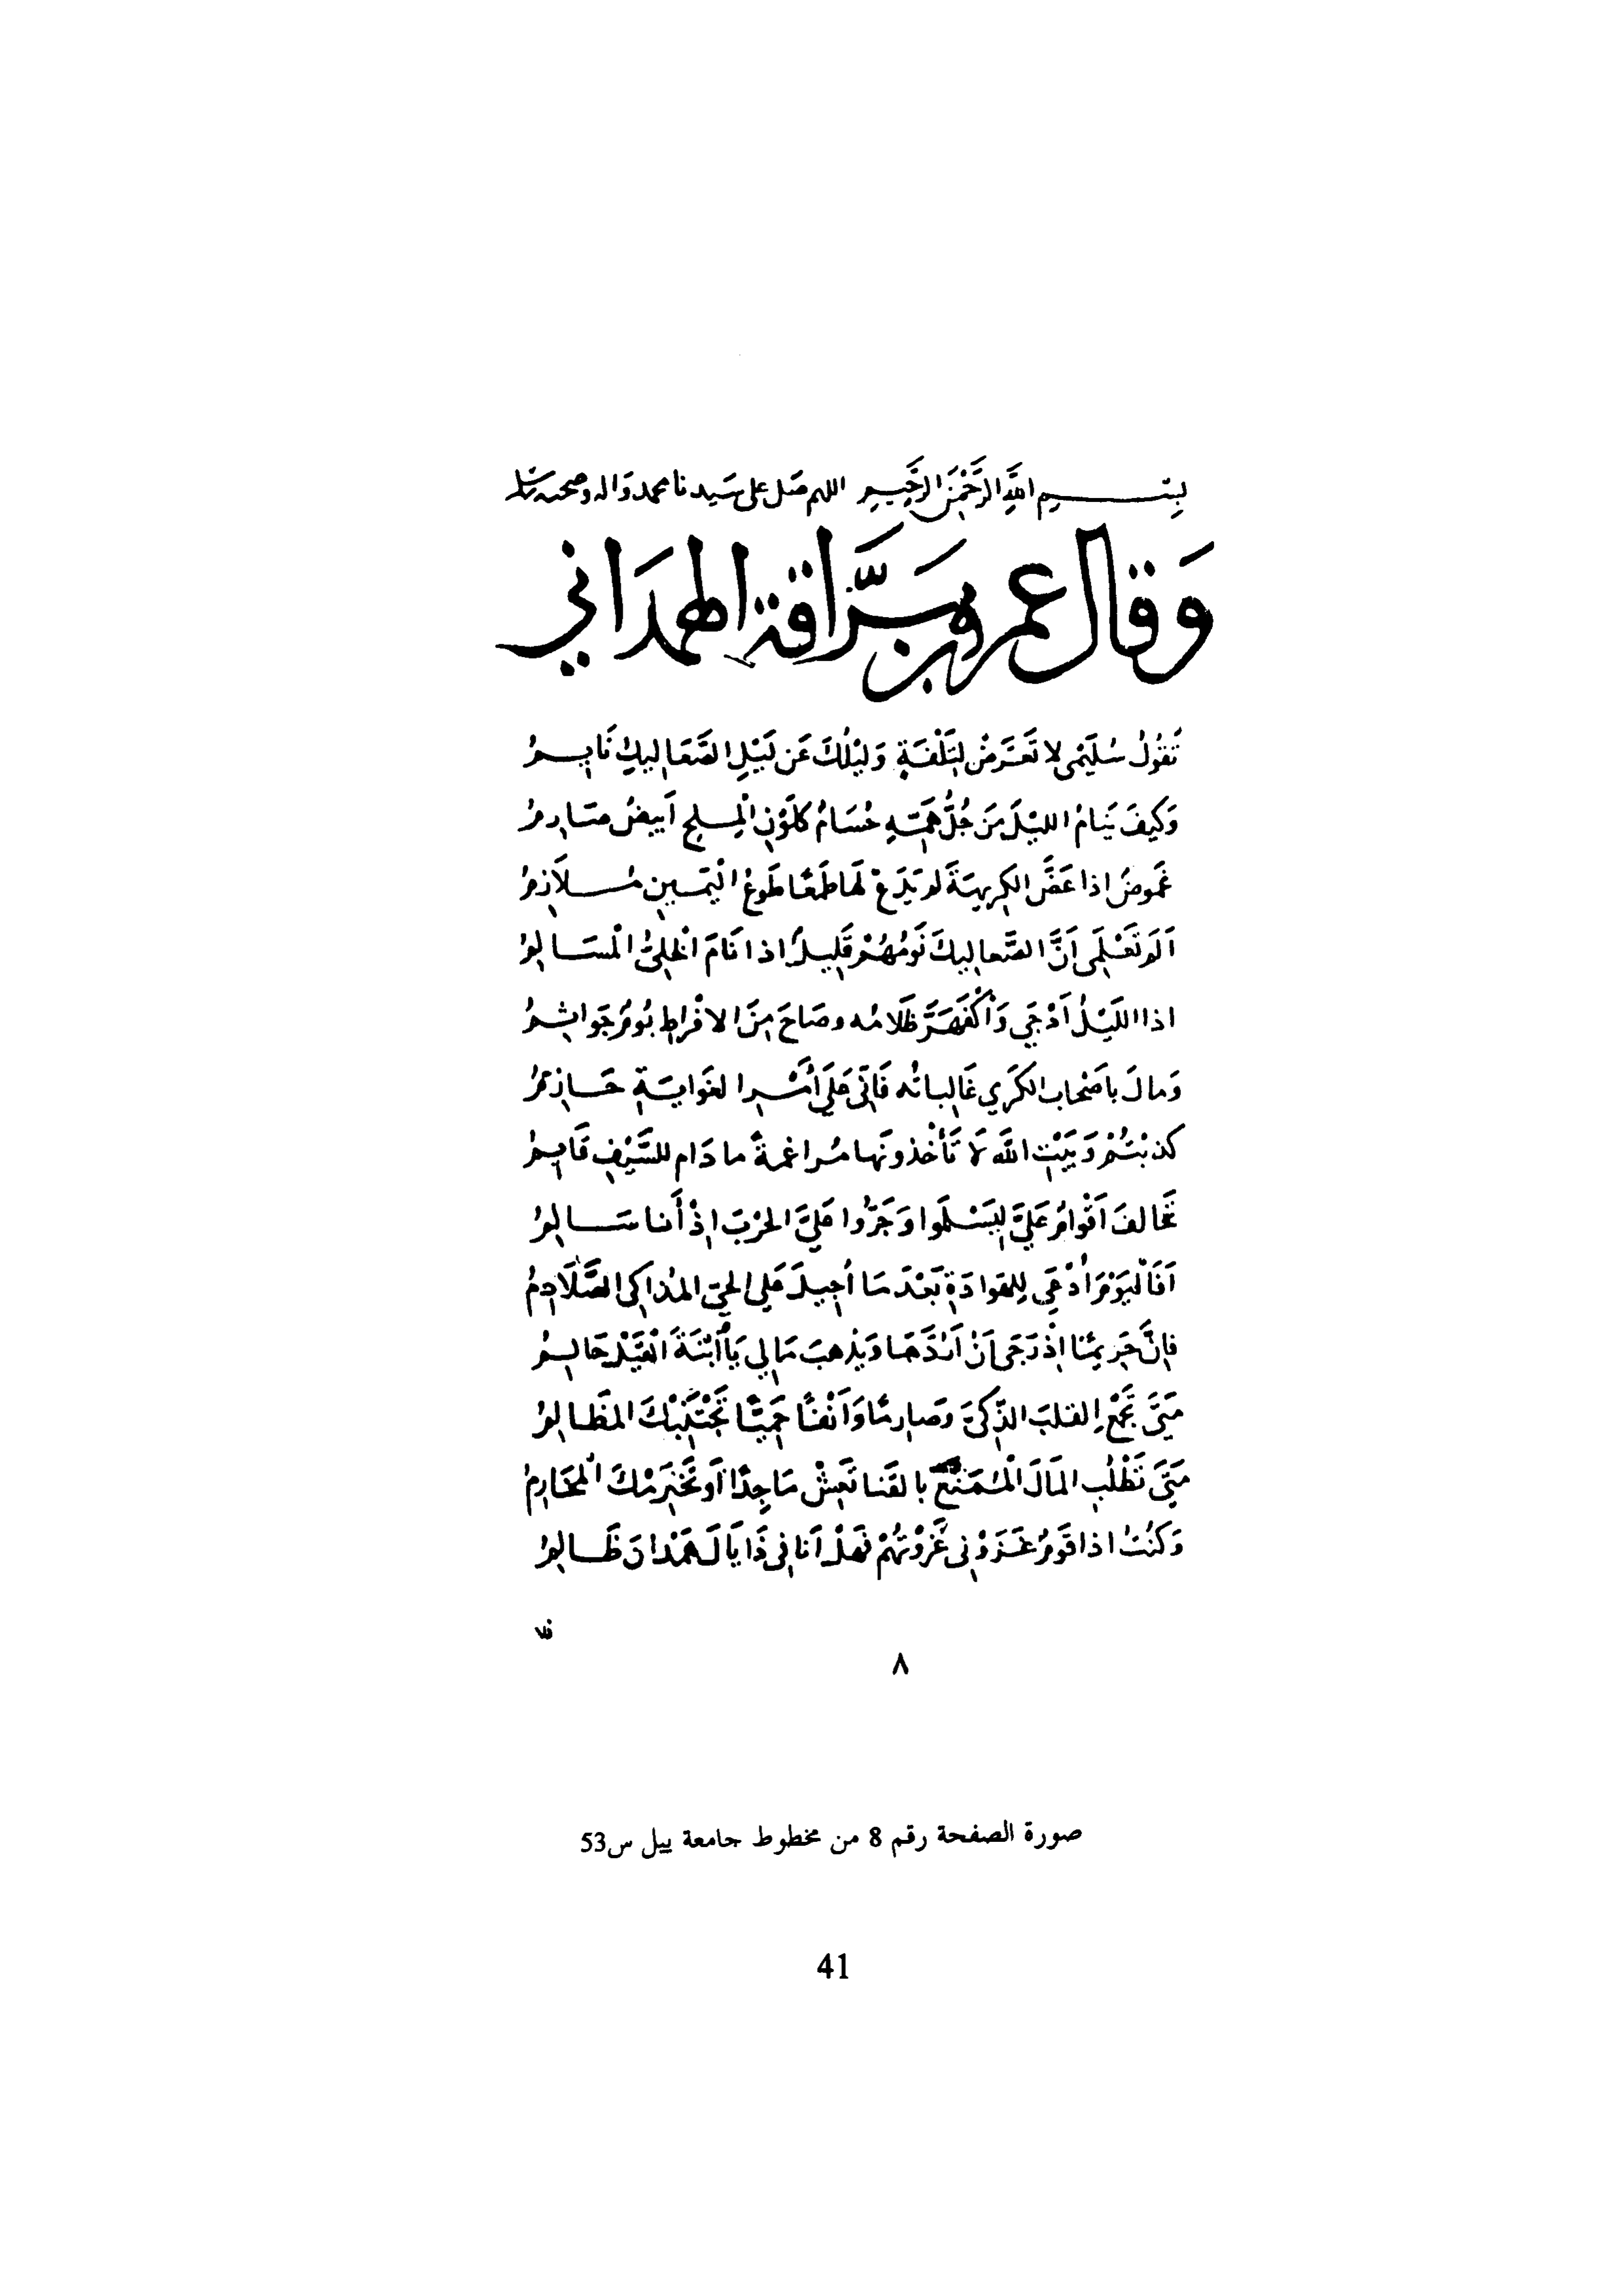 بِسْمِ اللَّهِ الرَّحْمَنِ الرَّحِيمِ اللهم صَل على سَيدنا محمد وَاله وصحبه وسلم
وَقَال عمرو بن بَرَّاقة الهمدَاني
تَقُولُ سُلَيْمى لا تَعَرَّضْ لِتَلْفَةٍ وَلَيْلُكَ عَن لَيْلِ الصَّعَاليكِ نَايِمُ
وَكَيفَ يَنَامُ الليْلَ مَنْ جُلُّ هَمِّهِ حُسَامٌ كلَوْنِ الْمِلحِ أَبيضُ صَارِمُ
غَموضٌ اذا عَضَّ الكَرِيهَةَ لم يَدَعْ لهَا طَمَعًا طَوعُ الْيَمِينِ مُلاَزِمُ
أَلَم تَعْلَمِي أَنَّ الصَّعاليكَ نَومُهُمْ قَلِيلٌ اذا نَامَ الخَلِيُّ الْمسَالِمُ
اذا الليْلُ أَدْجَي وَأكْفَهَرَّ ظَلامُه وصَاحَ مِنَ الافْراطِ بُومٌ جَوَاثِمُ
وَمالَ باصْحَاب الكَرَي غَالباتُه فَانّي عَلَي أمْرِ الغَوايَةِ حَازِمُ
كذبْتُمْ وَبَيْتِ اللَّه لاَ تَأخُذونَها مُراغمةً ما دَام للسَّيْفِ قَايِمُ
تَحَالفَ اَقْوامٌ عَلَيَّ لِيَسْلَموا وَجَرُّوا عَلَيَّ الحَرْبَ اِذْ أَنا سَالِمُ
اَفَالْيَوْمَ أُدْعَى لِلهَوادَةِ بَعْدَ مَا أُجِيلَ عَلى الحيّ المْذاكى الصَّلَادِمُ
فاِنَّ حَرِيمَنا اِذْ رَجَى اَنْ اَرُدَّهَا وَيذهبَ مَالِي يَا اَبْنَةَ الْقَيْلِ حَالِمُ
مَتَى تَجْمَعِ القلبَ الذَّكيَّ وَصَارِمًا وَاَنْفًا حَمِيًّا تَجْتَنِبْكَ المظَالِمُ
مَتَى تَطْلُبِ المَالَ الْمُمَنَّعَ بالقَنا تَعِشْ مَاجِدًا أَو تَخْتَرِمْكَ الْمخَارِمُ
وَكنْتُ اذا قَومٌ غَزَوْنِي غَزَوْتُهُمْ فَهَلْ أَنا فِي ذَا يَالَ هَمْدانَ ظَالِمُ
فلا
٨
صورة الصفحة رقم 8 من مخطوط جامعة ييل س53
41